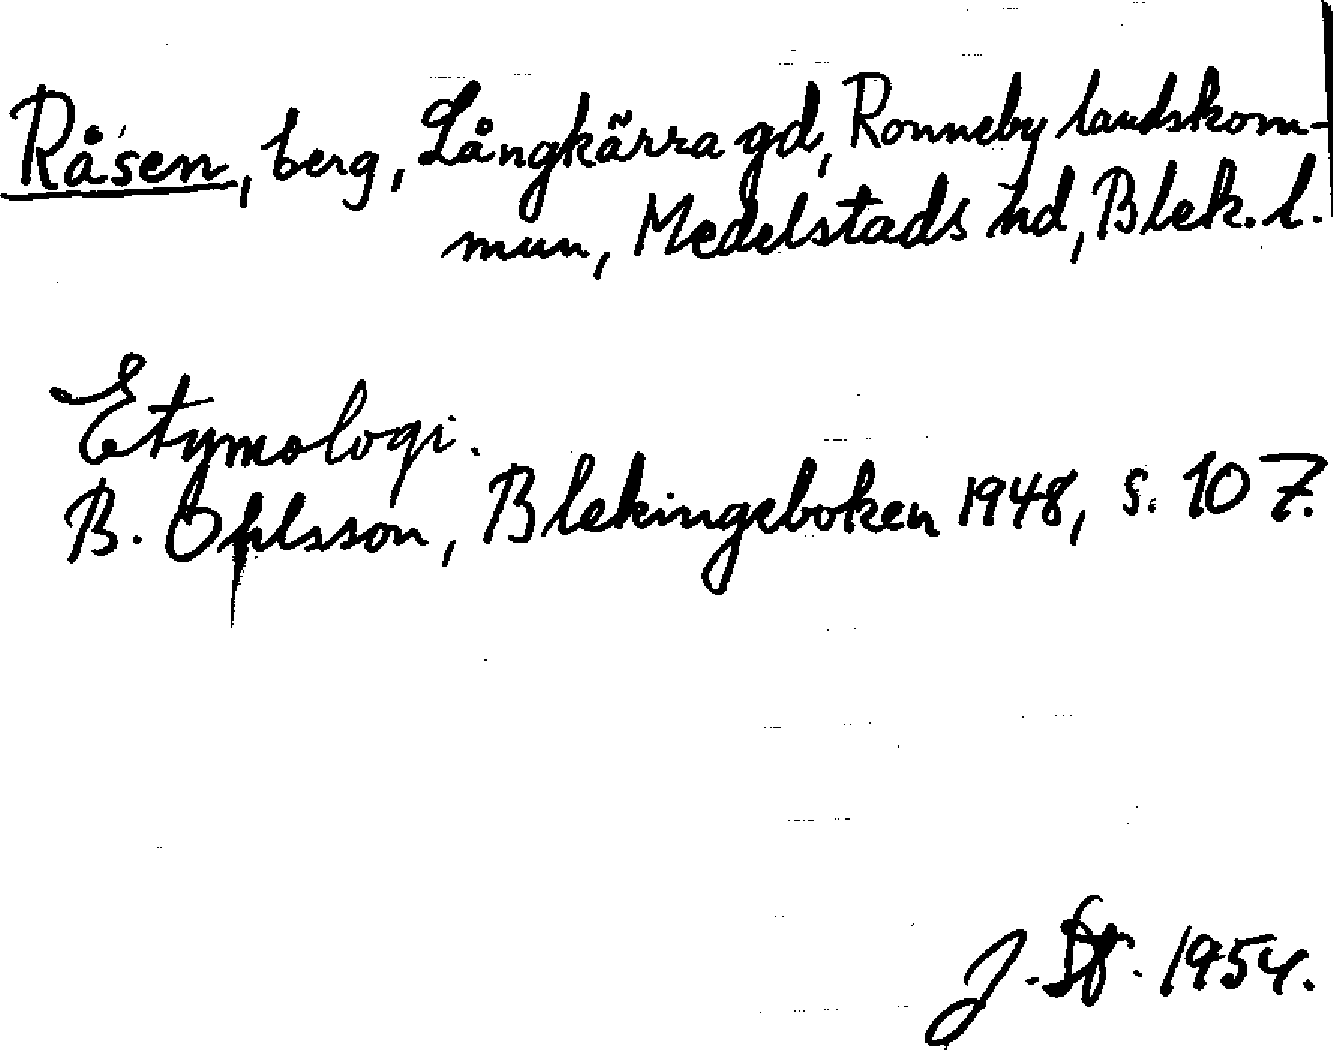 Råsen, berg, Långkärra gd, Ronneby landskom-
mun, Medelstads hd, Blek. l.
Etymologi.
B. Ohlsson, Blekingeboken 1948, s. 107.
J. 1954.